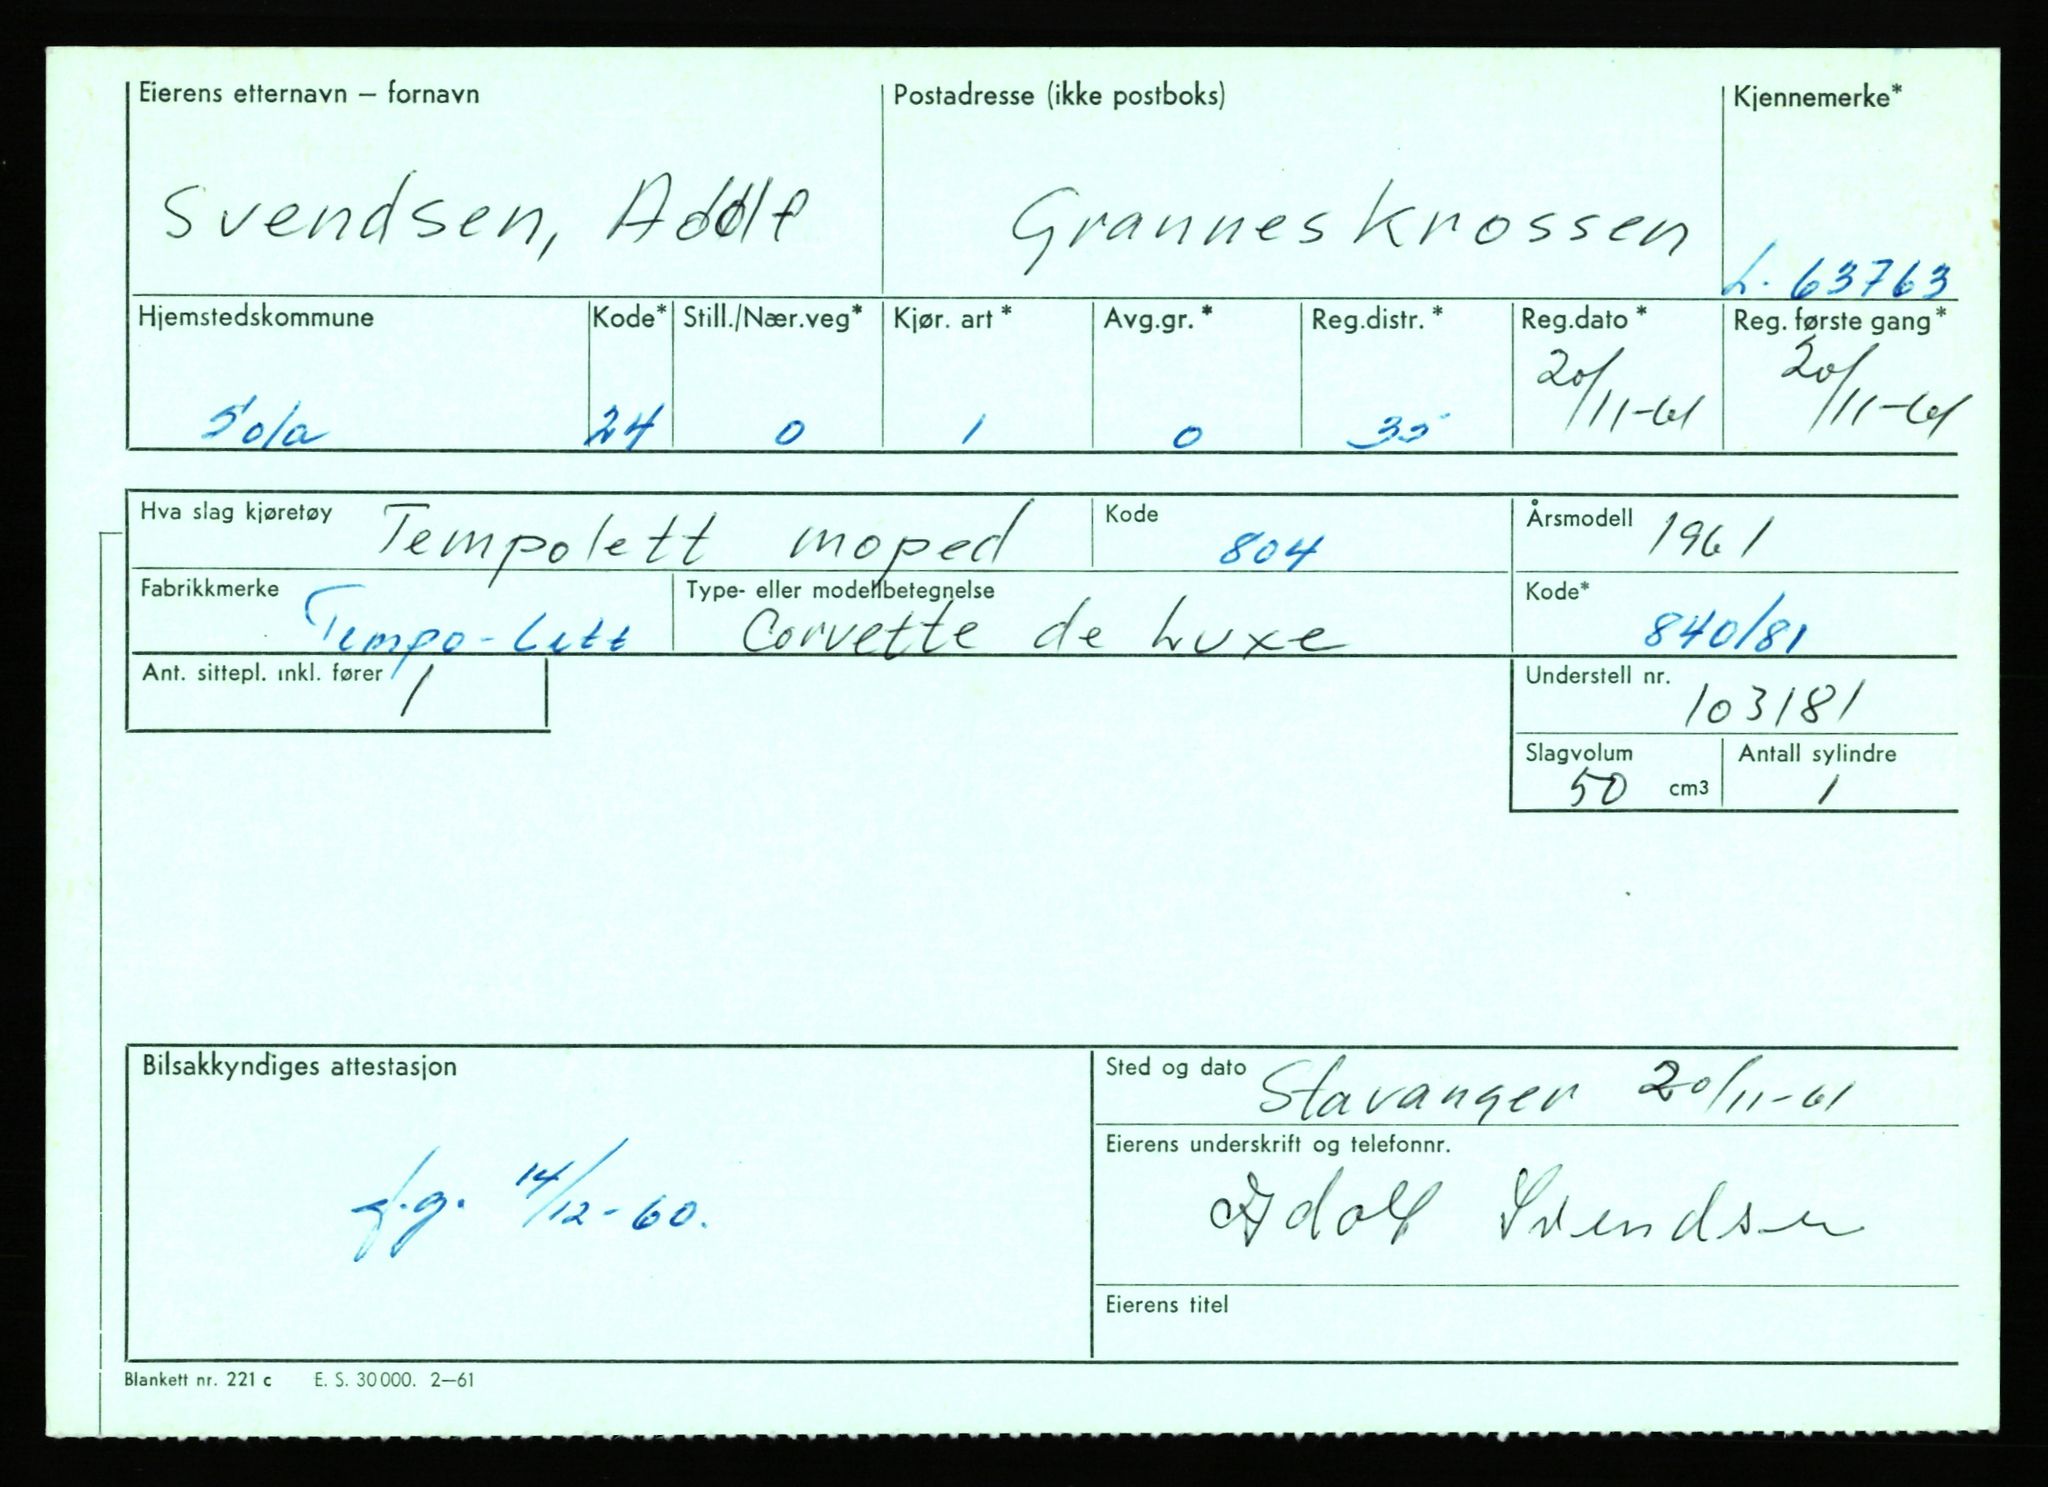 Eierens etternavn – fornavn Postadresse (ikke postboks) Kjennemerke*
Svendsen, Adolf Granneskrossen
L. 63763
Hjemstedskommune Kode* Still./Nær.veg* Kjør. art* Avg.gr.* Reg.distr.* Reg.dato* Reg. første gang*
Sola 24 0 1 0 35 20/11-61 20/11-61
Hva slag kjøretøy Tempolett moped Kode 804 Årsmodell 1961
Fabrikkmerke Tempo-Lett Type- eller modellbetegnelse Corvette de Luxe Kode* 840/81
Ant. sittepl. inkl. fører 1 Understell nr. 103181
Slagvolum 50 cm3 Antall sylindre 1
Bilsakkyndiges attestasjon Sted og dato Stavanger 20/11-61
Eierens underskrift og telefonnr.
f.g. 14/12-60. Adolf Svendsen
Eierens titel
Blankett nr. 221 c E. S. 30 000. 2–61